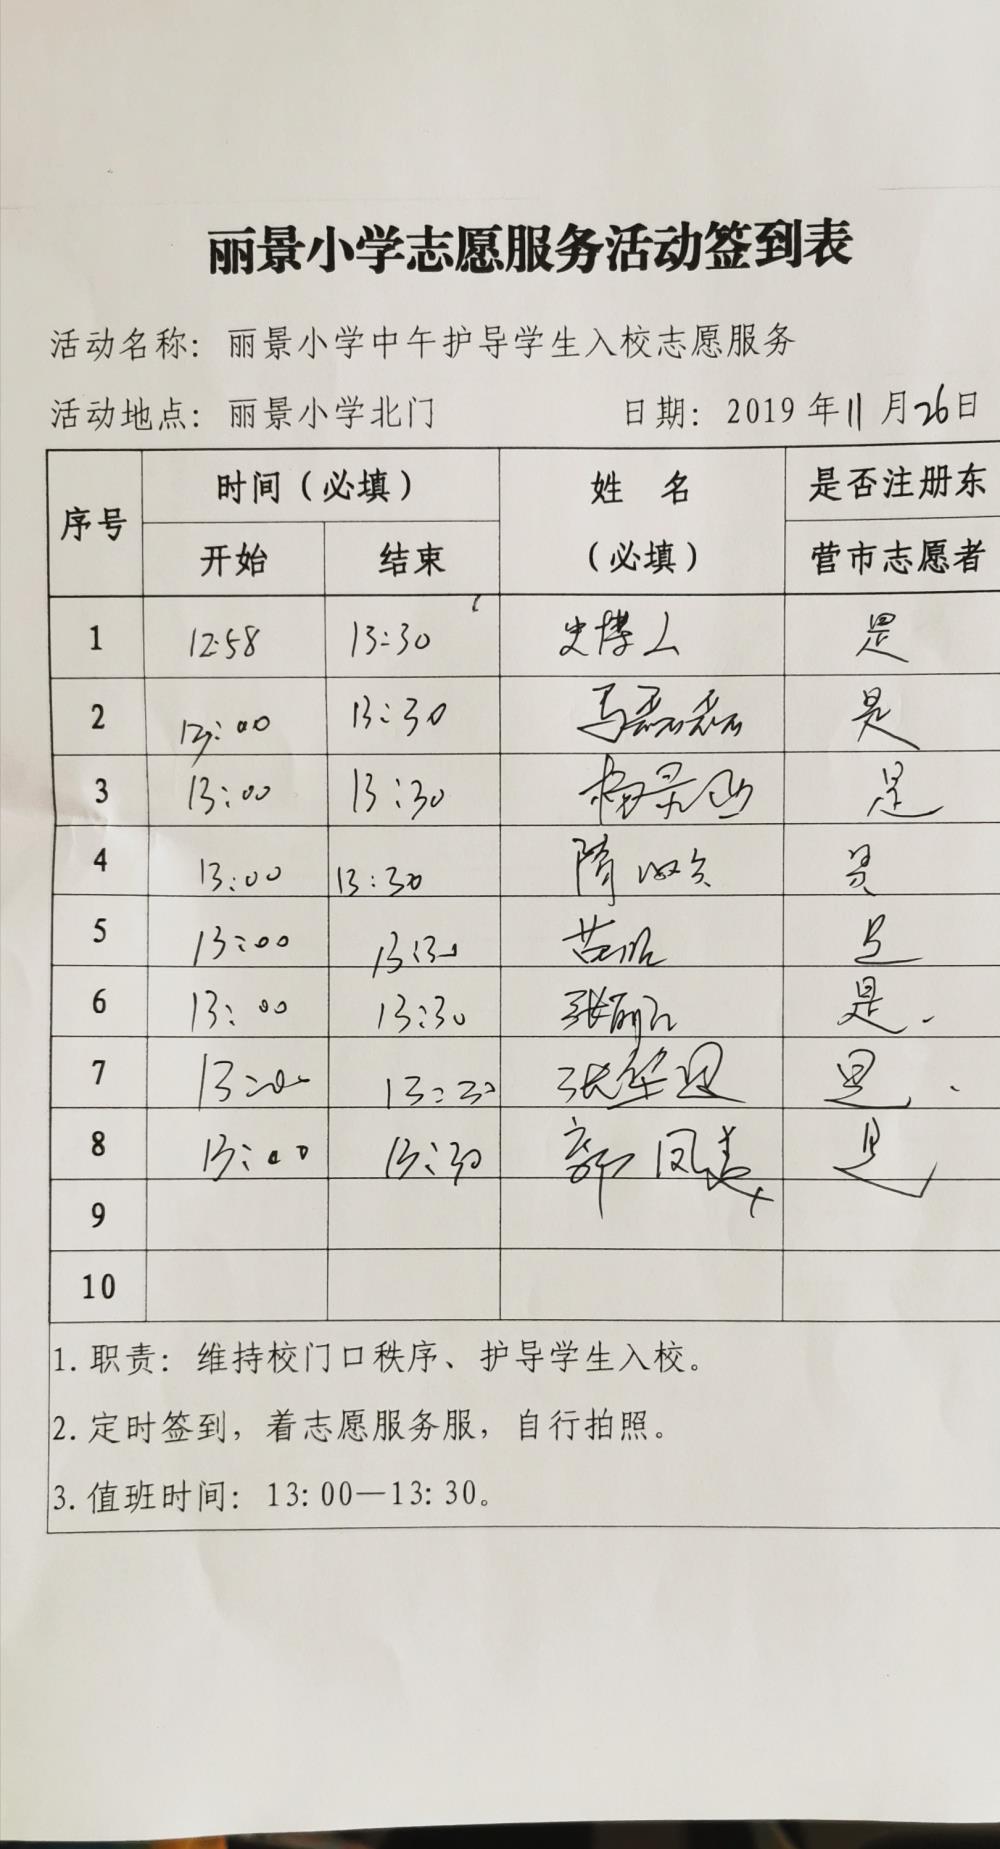 丽景小学志愿服务活动签到表
活动名称：丽景小学中午护导学生入校志愿服务
活动地点：丽景小学北门 日期：2019年11月26日
序号 时间（必填） 姓名（必填） 是否注册东营市志愿者
开始 结束
1 12:58 13:30 史博人 是
2 13:00 13:30 马磊磊 是
3 13:00 13:30 杨景 是
4 13:00 13:30 隋 是
5 13:00 13:30 苗 是
6 13:00 13:30 张丽 是.
7 13:00 13:30 张华 是.
8 13:00 13:30 郭凤美 是
9
10
1.职责：维持校门口秩序、护导学生入校。
2.定时签到，着志愿服务服，自行拍照。
3.值班时间：13:00—13:30。